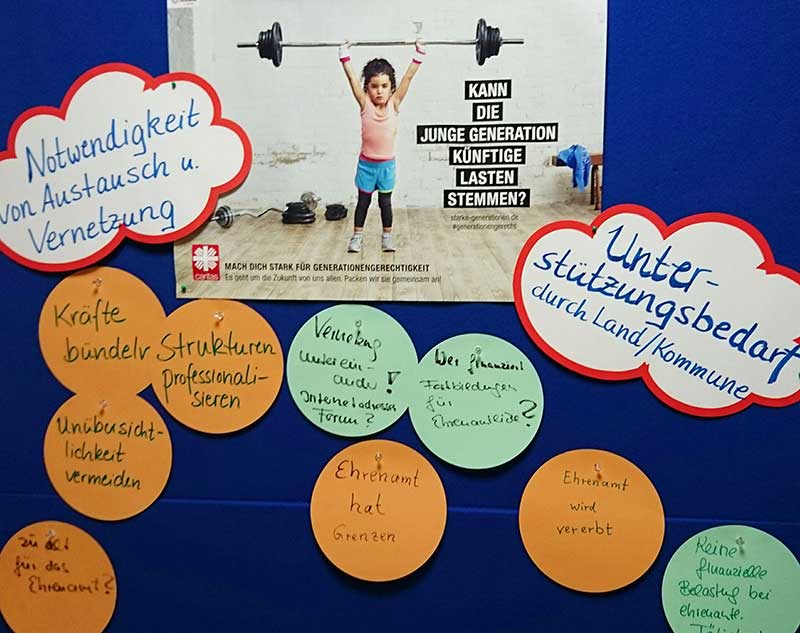 KANN
DIE
JUNGE GENERATION
KÜNFTIGE
LASTEN
STEMMEN?
starke-generationen.de
#generationengerecht
caritas
MACH DICH STARK FÜR GENERATIONENGERECHTIGKEIT
Es geht um die Zukunft von uns allen. Packen wir sie gemeinsam an!
Notwendigkeit
von Austausch u.
Vernetzung
Unter-
stützungsbedarf
durch Land/Kommune
Kräfte
bündeln
Strukturen
professionali-
sieren
Vernetzung
unterein-
ander!
Internetadressen
Forum?
Wer finanziert
Fortbildungen
für
Ehrenamtliche?
Unübersicht-
lichkeit
vermeiden
Ehrenamt
hat
Grenzen
Ehrenamt
wird
vererbt
zu alt
für das
Ehrenamt?
Keine
finanzielle
Belastung bei
ehrenamtl.